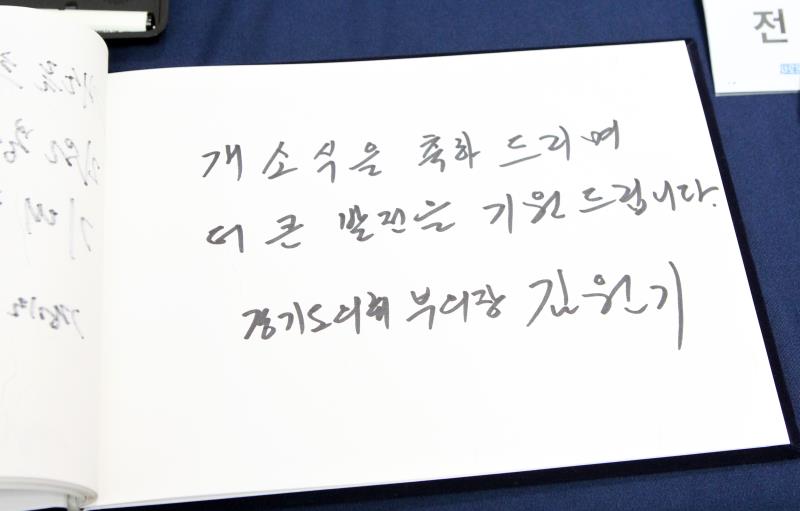 개소식을 축하 드리며
더 큰 발전을 기원드립니다.
경기도의회 부의장 김원기
전